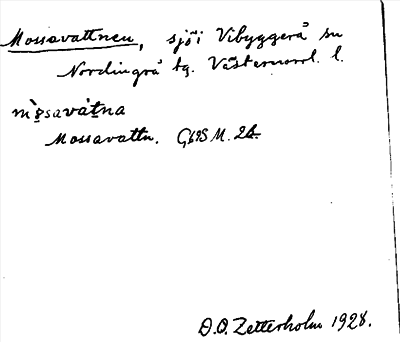 Mossavattnen, sjö i Vibyggerå sn
Nordingrå tg. Västernorrl. l.
mòsavàtna
Mossavattn. G,69S M. 2
D.O. Zetterholm 1928.